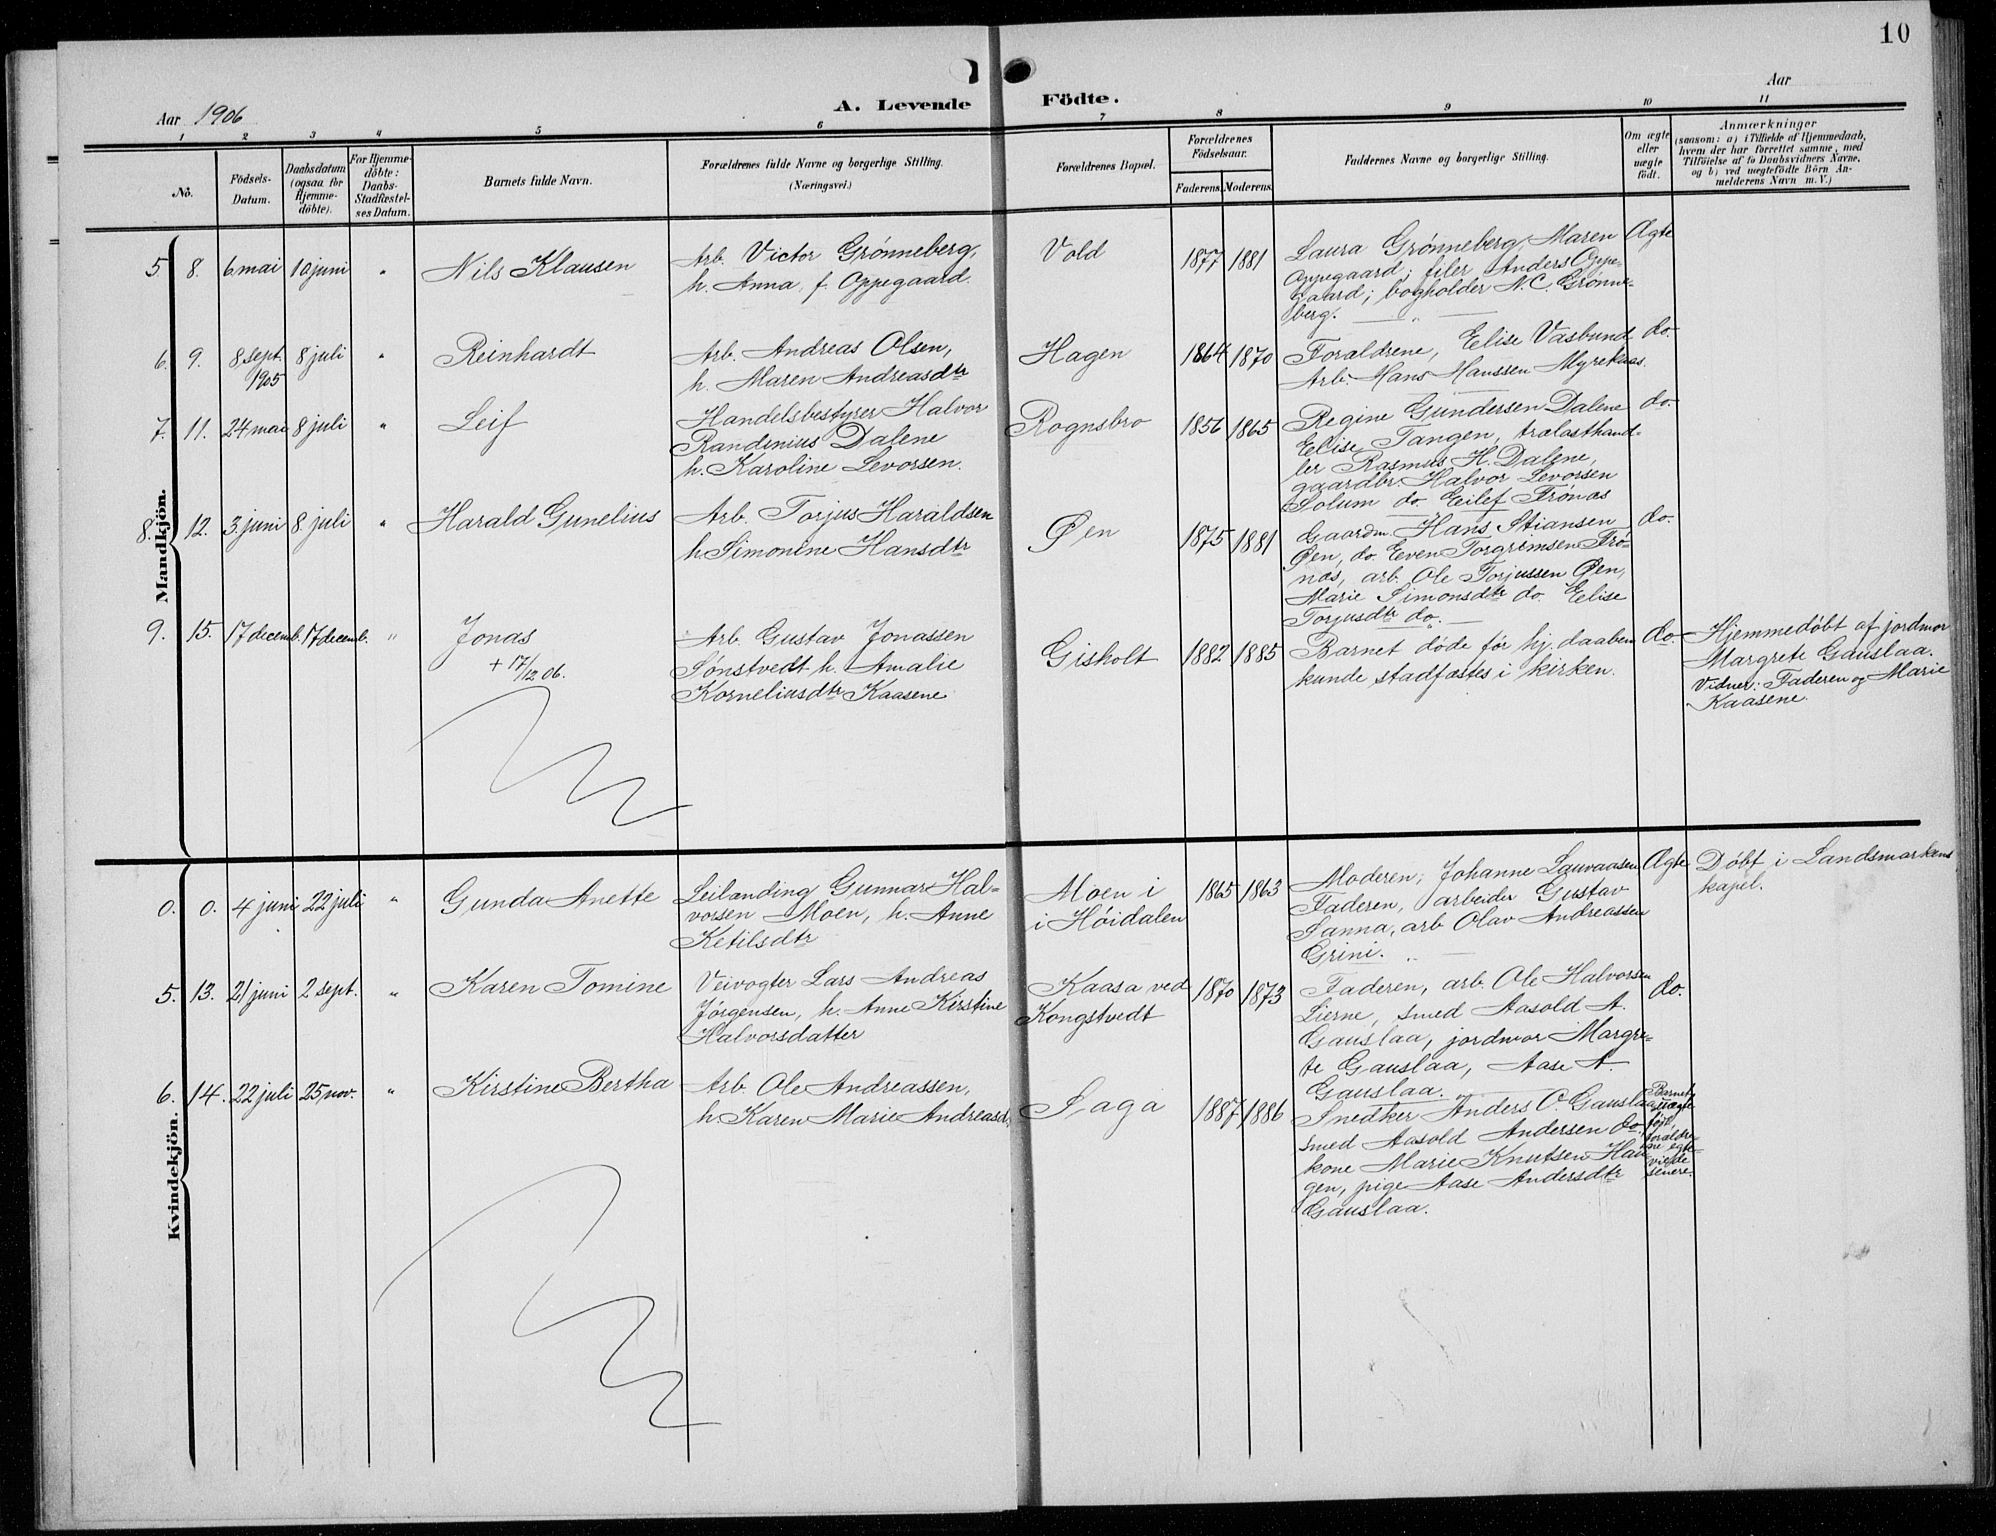 10
Aar 1906
A. Levende Födte.
Aar
1 2 3 4 5 6 7 8 9 10 11
No.
Födsels-
Datum.
Daabsdatum
(ogsaa for
Hjemme-
döbte).
For Hjemme-
döbte:
Daabs-
Stadfæstel-
ses Datum.
Barnets fulde Navn.
Forældrenes fulde Navne og borgerlige Stilling.
(Næringsvei.)
Forældrenes Bopæl.
Forældrenes
Födselsaar.
Faderens. Moderens.
Faddernes Navne og borgerlige Stilling.
Om ægte
eller
uægte
födt.
Anmærkninger
(saasom: a) i Tilfælde af Hjemmedaab,
hvem der har forrettet samme, med
Tilföielse af to Daabsvidners Navne,
og b) ved uægtefödte Börn An-
melderens Navn m. V.)
Mandkjön.
5 8. 6 mai 10 juni "
Nils Klausen
Arb. Victor Grønneberg,
h. Anna, f. Oppegaard.
Vold
1877 1881
Laura Grønneberg, Maren
Oppegaard; filer Anders Oppe-
gaard; bogholder N. C. Grønne-
berg.
Ægte
6. 9. 8 sept. 8 juli "
1905
Reinhardt
Arb. Andreas Olsen,
h. Maren Andreasdtr
Hagen
1864 1870
Forældrene, Elise Vasbund
Arb. Hans Hanssen Myrekaas.
do.
7. 11. 24 mai 8 juli "
Leif
Handelsbestyrer Halvor
Randinius Dalene
h. Karoline Levorsen.
Rognsbro
1856 1865
Regine Gundersen Dalene
Elise Tangen, trælasthand-
ler Rasmus H. Dalene,
gaardbr. Halvor Levorsen
Solum do. Eilef Frønæs
do.
8. 12. 3 juni 8. juli "
Harald Gunelius
Arb. Torjus Haraldsen
h. Simonine Hansdtr
Øen
1875 1881
Gaardm. Hans Stiansen
Øen, do. Even Torgrimsen Frø-
næs, arb. Ole Torjussen Øen,
Marie Simonsdtr do. Elise
Torjusdtr do.
do.
9. 15. 17 decemb. 17 decemb. "
Jonas
+ 17/12 06.
Arb. Gustav Jonassen
Sønstvedt h. Amalie
Korneliusdtr Kaasene
Gisholt
1882 1885
Barnet døde før hj. daaben
kunde stadfæstes i kirken.
do.
Hjemmedøbt af jordmor
Margrete Gauslaa.
Vidner: Faderen og Marie
Kaasene.
Kvindekjön.
0. 0. 4 juni 22 juli "
Gunda Anette
Leilænding Gunnar Hal-
vorsen Moen, h. Anne
Ketilsdtr
Moen i
i Høidalen
1865 1863
Moderen, Johanne Lauvaasen
Faderen, arbeider Gustav
Sanna, arb Olav Andreassen
Grini.
Ægte
Døbt i Landsmarkens
kapel.
5. 13. 21 juni 2 sept. "
Karen Tomine
Veivogter Lars Andreas
Jørgensen, h. Anne Kirstine
Halvorsdatter
Kaasa ved
Kongstvedt
1870 1873
Faderen, arb. Ole Halvorsen
Lierne, smed Aasold A.
Gauslaa, jordmor Margre-
te Gauslaa, Aase A.
Gauslaa.
do.
6. 14. 22 juli 25 nov. "
Kirstine Bertha
Arb. Ole Andreassen,
h. Karen Marie Andreasd.
Saga
1887 1886
Snedker Anders O. Gauslaa,
smed Aasold Andersen do.
kone Marie Knutsen Hau-
gen, pige Aase Andersdtr
Gauslaa.
Barnet
uægte
født,
forældre-
ne egte-
viede
senere.